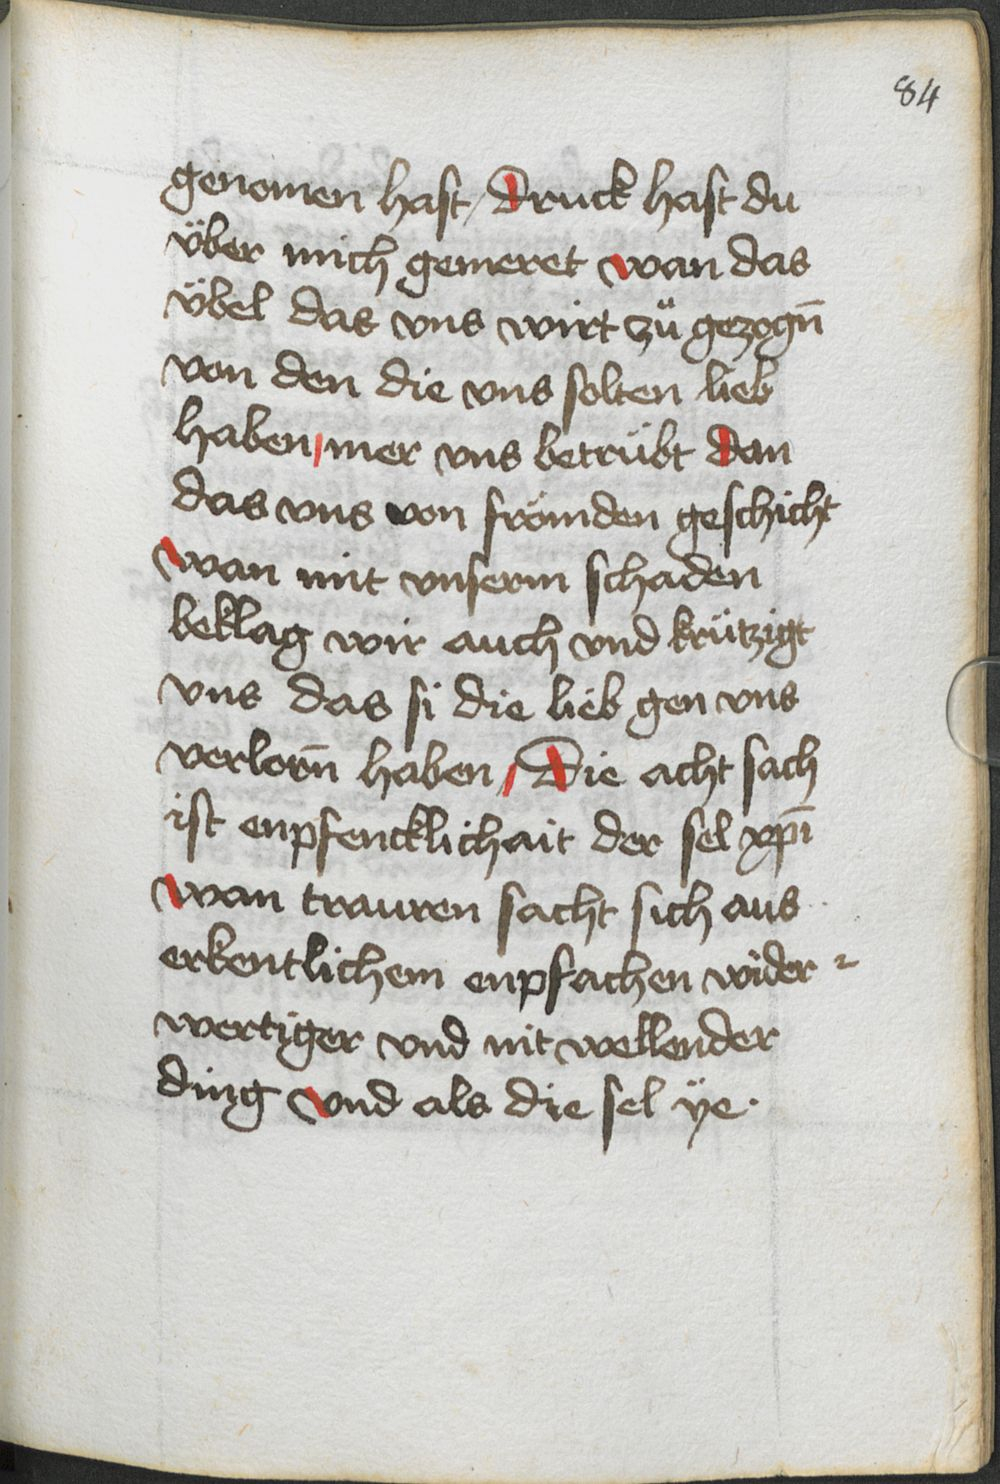 84
genomen hast / druck hast du
über mich gemeret wan das
übel das vns wirt zü gezogn̄
von den die vns solten lieb
haben / mer vns betrübt dan
das vns von frömden geschicht
wan mit vnserm schaden
beklag wir auch vnd krützigt
vns das si die lieb gen vns
verlorn̄ haben / Die acht sach
ist enpfencklichait der sel xp̄i
wan trauren sacht sich aus
erkentlichem enpfachen wider=
wertiger vnd nit wellender
ding vnd als die sel ÿe.